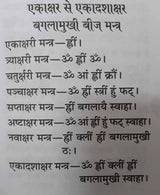 एकाक्षर से एकादशाक्षर
बगलामुखी बीज मन्त्र
एकाक्षरी मन्त्र—ह्लीं।
त्र्याक्षरी मन्त्र—ॐ ह्लीं ॐ।
चतुर्क्षरी मन्त्र—ॐ आं ह्लीं क्रौं।
पञ्चाक्षर मन्त्र—ॐ ह्लीं स्त्रीं हुं फट्।
सप्ताक्षर मन्त्र—ह्लीं बगलायै स्वाहा।
अष्टाक्षर मन्त्र—ॐ आं ह्लीं क्रों हुं फट् स्वाहा।
नवाक्षर मन्त्र—ह्लीं क्लीं ह्लीं बगलामुखी
ठः।
एकादशाक्षर मन्त्र—ॐ ह्लीं क्लीं ह्लीं
बगलामुखी स्वाहा।